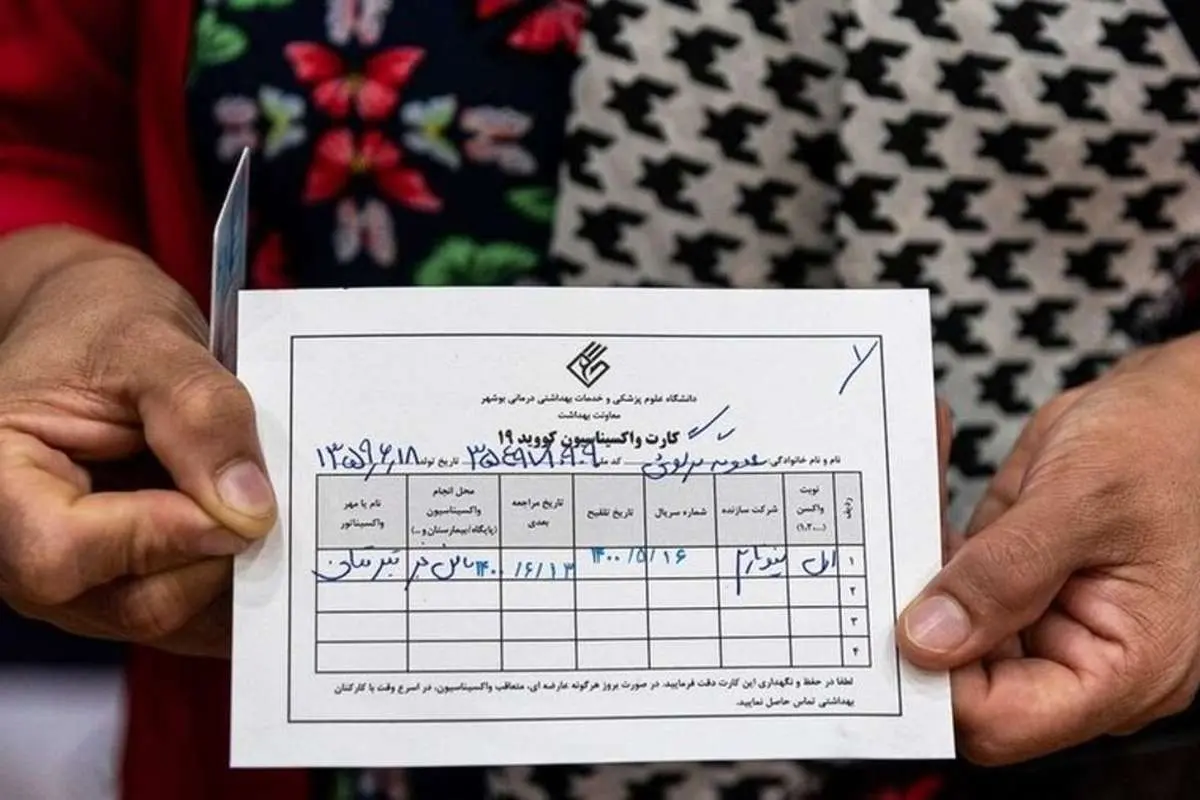 ۷
دانشگاه علوم پزشکی و خدمات بهداشتی درمانی بوشهر
معاونت بهداشت
کارت واکسیناسیون کووید ۱۹
نام و نام خانوادگی: کد ملی تاریخ تولد ۱۳۵۹/۶/۱۸
ردیف نوبت واکسن (۱,۲,...) شرکت سازنده شماره سریال تاریخ تلقیح تاریخ مراجعه بعدی محل انجام واکسیناسیون (پایگاه/بیمارستان و ...) نام یا مهر واکسیناتور
۱ اول سینوفارم ۱۴۰۰/۵/۱۶ ۱۴۰۰/۶/۱۳
۲
۳
۴
لطفا در حفظ و نگهداری این کارت دقت فرمایید. در صورت بروز هرگونه عارضه ای، متعاقب واکسیناسیون، در اسرع وقت با کارکنان
بهداشتی تماس حاصل نمایید.